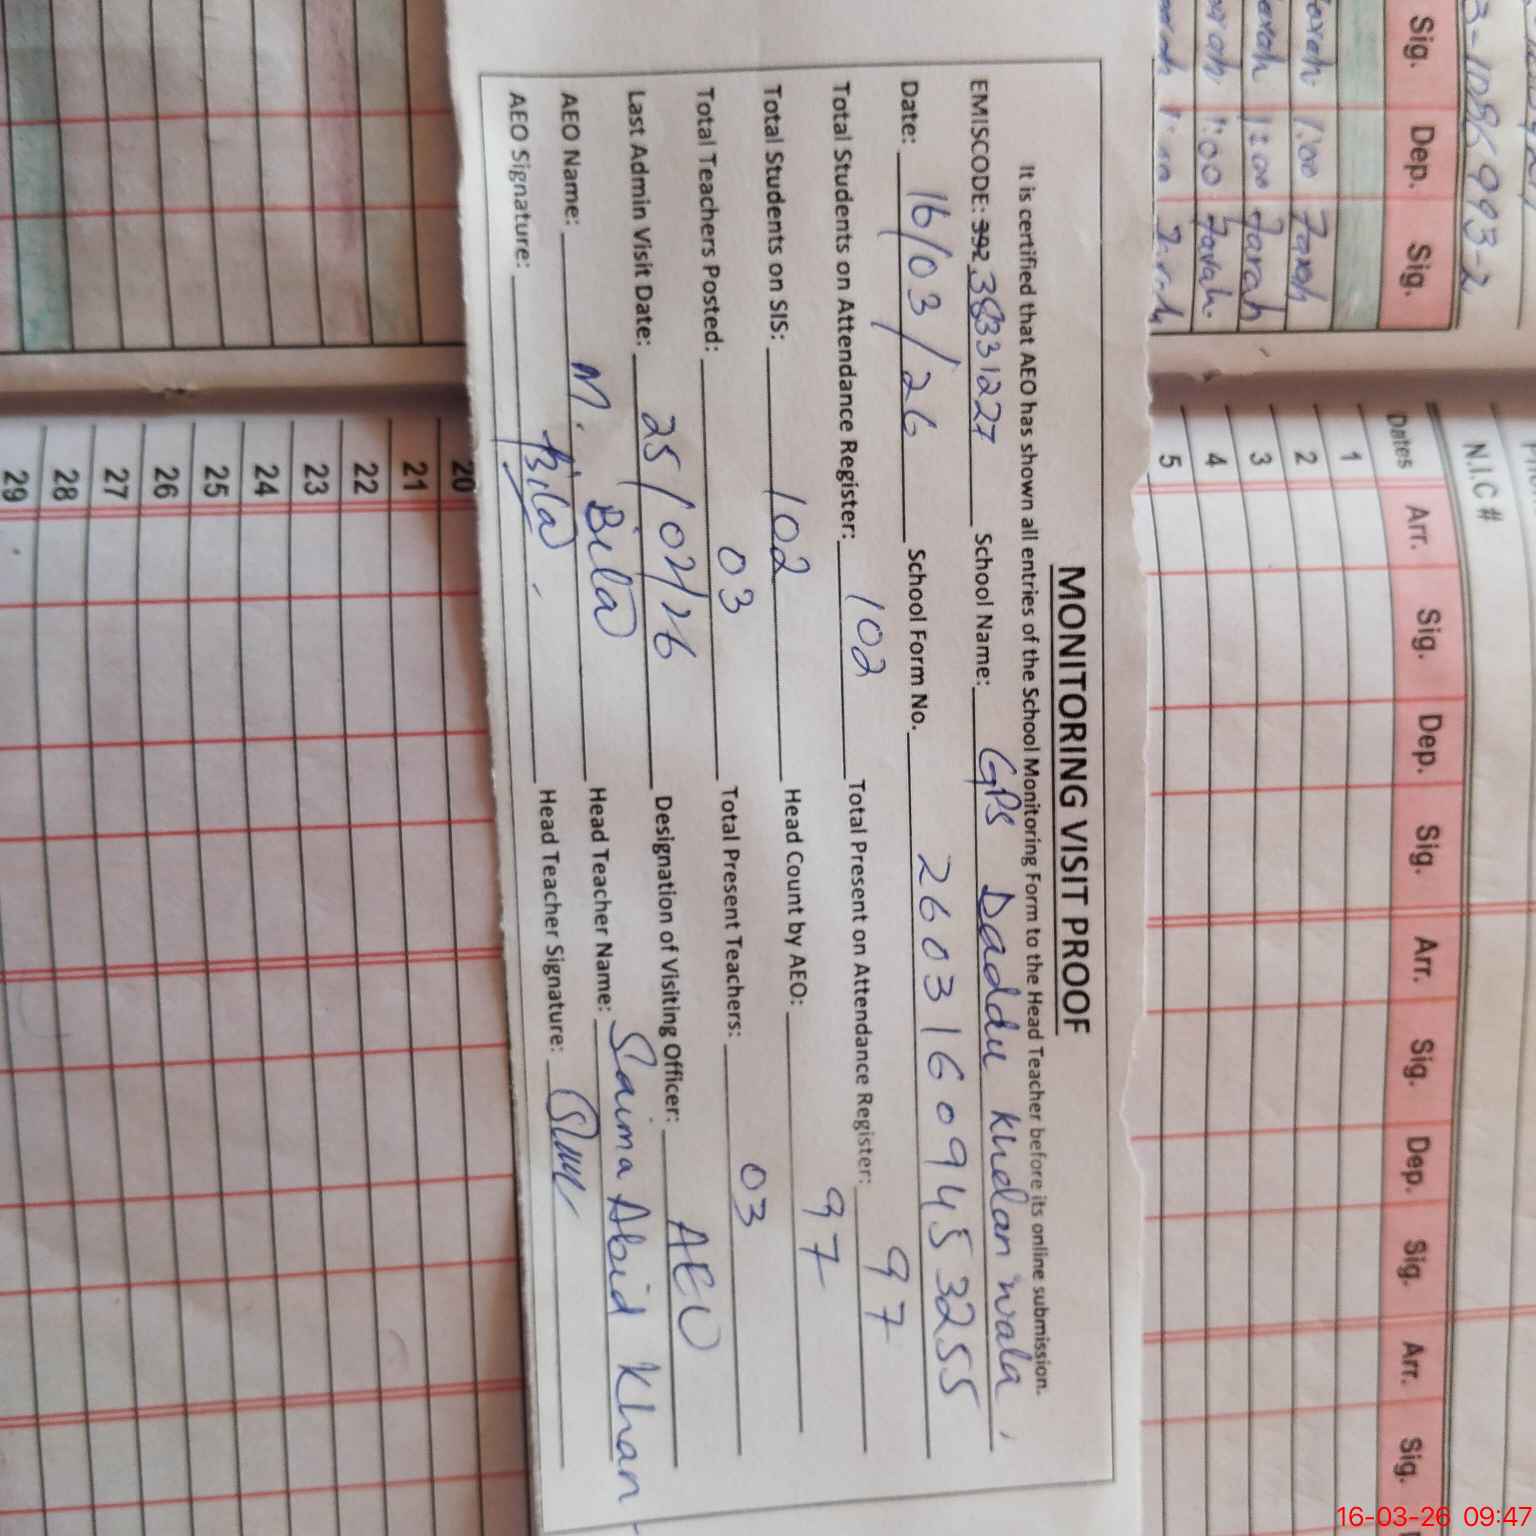 MONITORING VISIT PROOF
It is certified that AEO has shown all entries of the School Monitoring Form to the Head Teacher before its online submission.
EMISCODE: 392 38331227 School Name: GPS Daddu Khelan wala
Date: 16/03/26 School Form No. 26031609453255
Total Students on Attendance Register: 102 Total Present on Attendance Register: 97
Total Students on SIS: 102 Head Count by AEO: 97
Total Teachers Posted: 03 Total Present Teachers: 03
Last Admin Visit Date: 25/02/26 Designation of Visiting Officer: AEO
AEO Name: M. Bilal Head Teacher Name: Saima Abid Khan
AEO Signature: Bilal Head Teacher Signature:
N.I.C #
Sig. Dep. Sig.
1:00 Farah
Farah 1:00 Farah
1:00 Farah
Dates Arr. Sig. Dep. Sig. Arr. Sig. Dep. Sig. Arr. Sig.
1
2
3
4
5
20
21
22
23
24
25
26
27
28
29
16-03-26 09:47